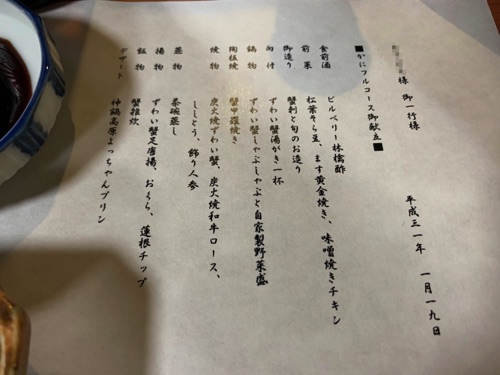 様 御一行様
平成三一年 一月一九日
■かにフルコース御献立■
食前酒 ビルベリー林檎酢
前菜 松葉そら豆、ます黄金焼き、味噌焼きチキン
御造り 蟹刺と旬のお造り
向付 ずわい蟹湯がき一杯
鍋物 ずわい蟹しゃぶしゃぶと自家製野菜盛
陶板焼 蟹甲羅焼き
焼物 炭火焼ずわい蟹、炭火焼和牛ロース、
ししとう、飾り人参
蒸物 茶碗蒸し
揚物 ずわい蟹足唐揚、おらら、蓮根チップ
飯物 蟹雑炊
デザート 神鍋高原よっちゃんプリン